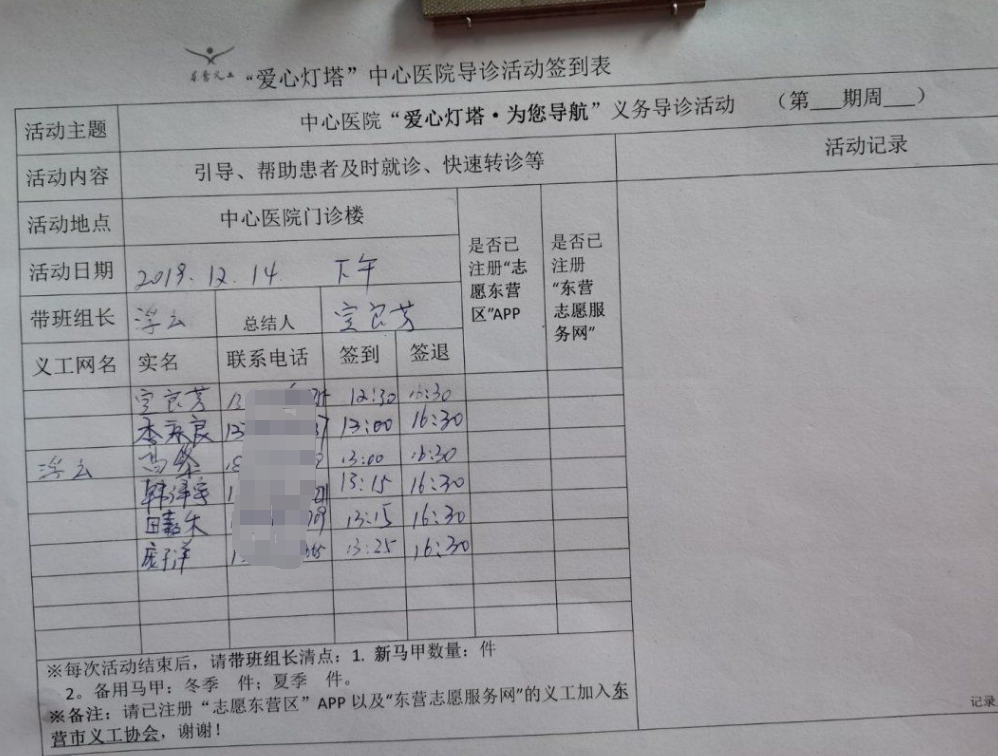 东营义工
“爱心灯塔”中心医院导诊活动签到表
活动主题 中心医院“爱心灯塔·为您导航”义务导诊活动 （第___期周___）
活动内容 引导、帮助患者及时就诊、快速转诊等 活动记录
活动地点 中心医院门诊楼 是否已注册“志愿东营区”APP 是否已注册“东营志愿服务网”
活动日期 2019.12.14 下午
带班组长 浮云 总结人
义工网名 实名 联系电话 签到 签退
12:30 16:30
13:00 16:30
浮云 13:00 16:30
13:15 16:30
13:15 16:30
13:25 16:30
※每次活动结束后，请带班组长清点：1. 新马甲数量： 件
2。备用马甲：冬季 件；夏季 件。
※备注：请已注册“志愿东营区”APP 以及“东营志愿服务网”的义工加入东
营市义工协会，谢谢！
记录